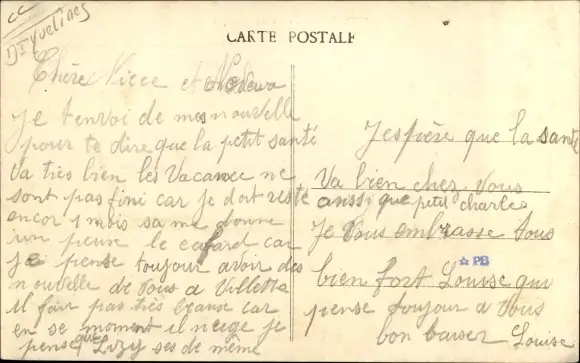 CC
Dt yvelines
CARTE POSTALE
Chère Niece et
Je tenvoi de mes nouvelle
pour te dire que la petit santé
Va très bien les Vacance ne
sont pas fini car je doit resté
encor 1 mois sa me donne
un peuve le cafard car
je pense toujour avoir des
nouvelle de Vous a Villette
il fair pas très beause car
en se moment il neige je
pense que Lizy ses de même
Jespière que la santé
Va bien chez Vous
aussi que petit charles
Je Vous embrasse tous
bien fort Louise qui
PB
pense toujour a Vous
bon baiser Louise